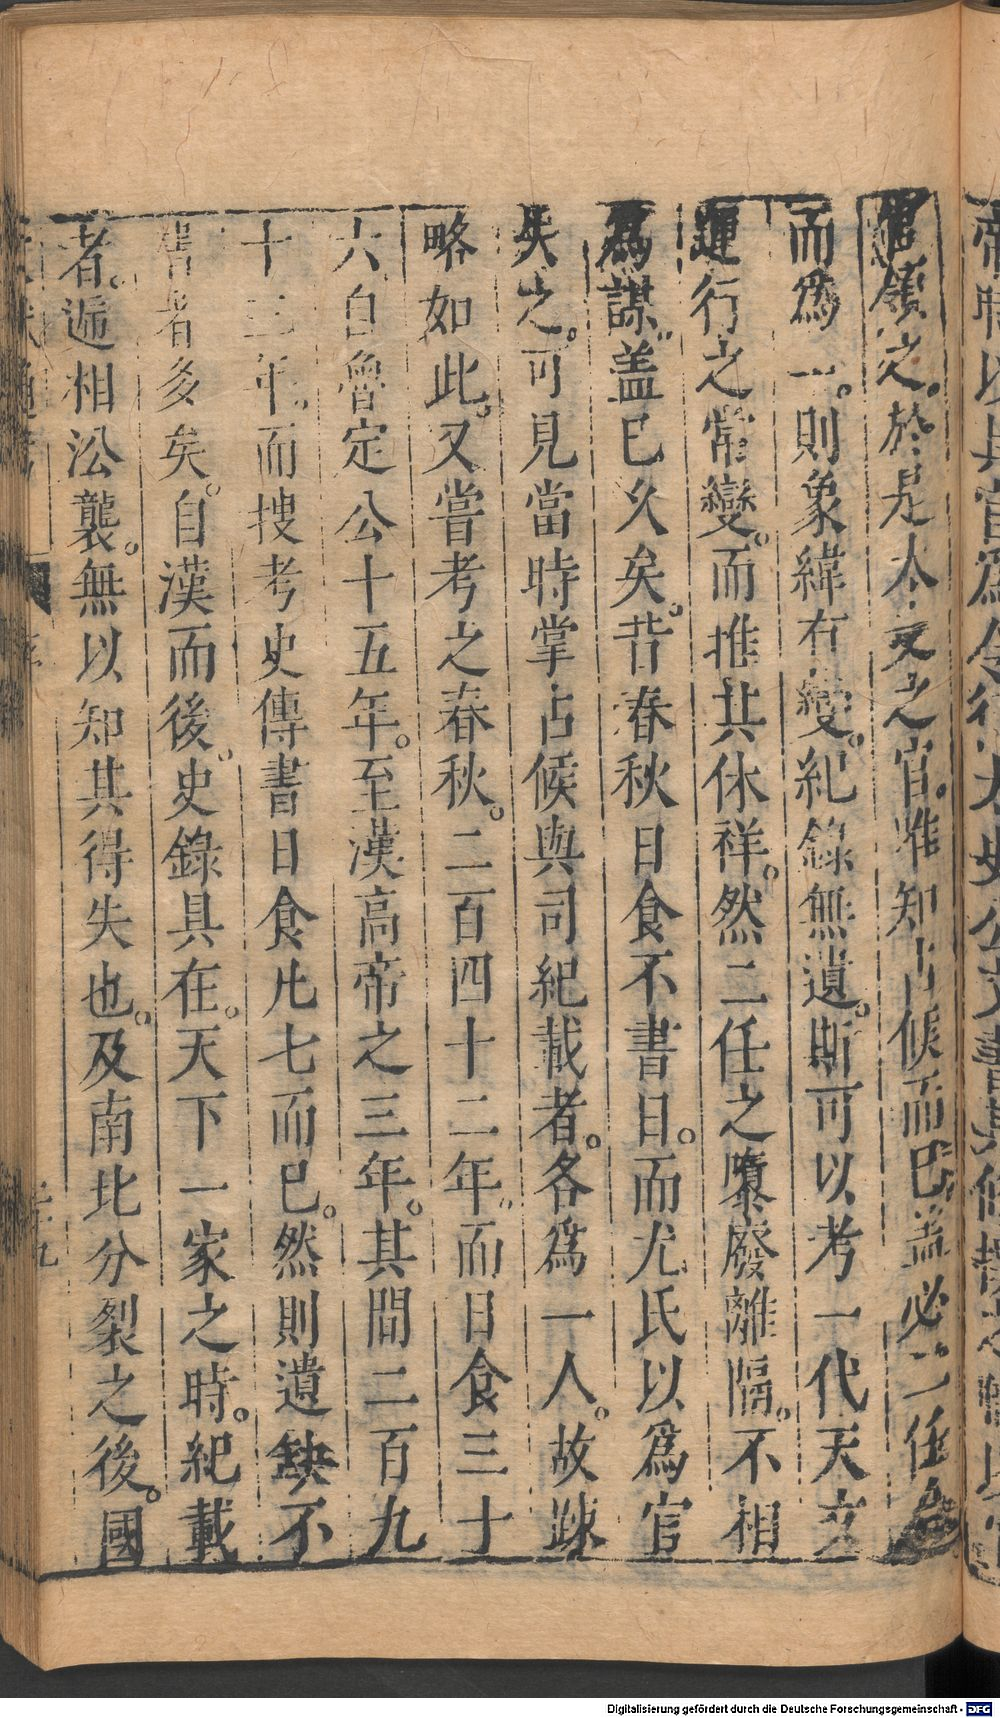 官領之。於是太史之官。惟知占候而已。蓋必二任合
而爲一。則象緯有變。紀錄無遺。斯可以考一代天文
運行之常變。而推其休祥。然二任之隳廢離隔。不相
爲謀。盖已久矣。昔春秋日食不書日。而尤氏以爲官
失之。可見當時掌占候與司紀載者。各爲一人。故疎
略如此。又嘗考之春秋。二百四十二年。而日食三十
六。自魯定公十五年。至漢高帝之三年。其間二百九
十三年。而搜考史傳書日食凡七而已。然則遺缺不
書者多矣。自漢而後。史錄具在。天下一家之時。紀載
者。遞相沿襲。無以知其得失也。及南北分裂之後。國
Digitalisierung gefördert durch die Deutsche Forschungsgemeinschaft - DFG